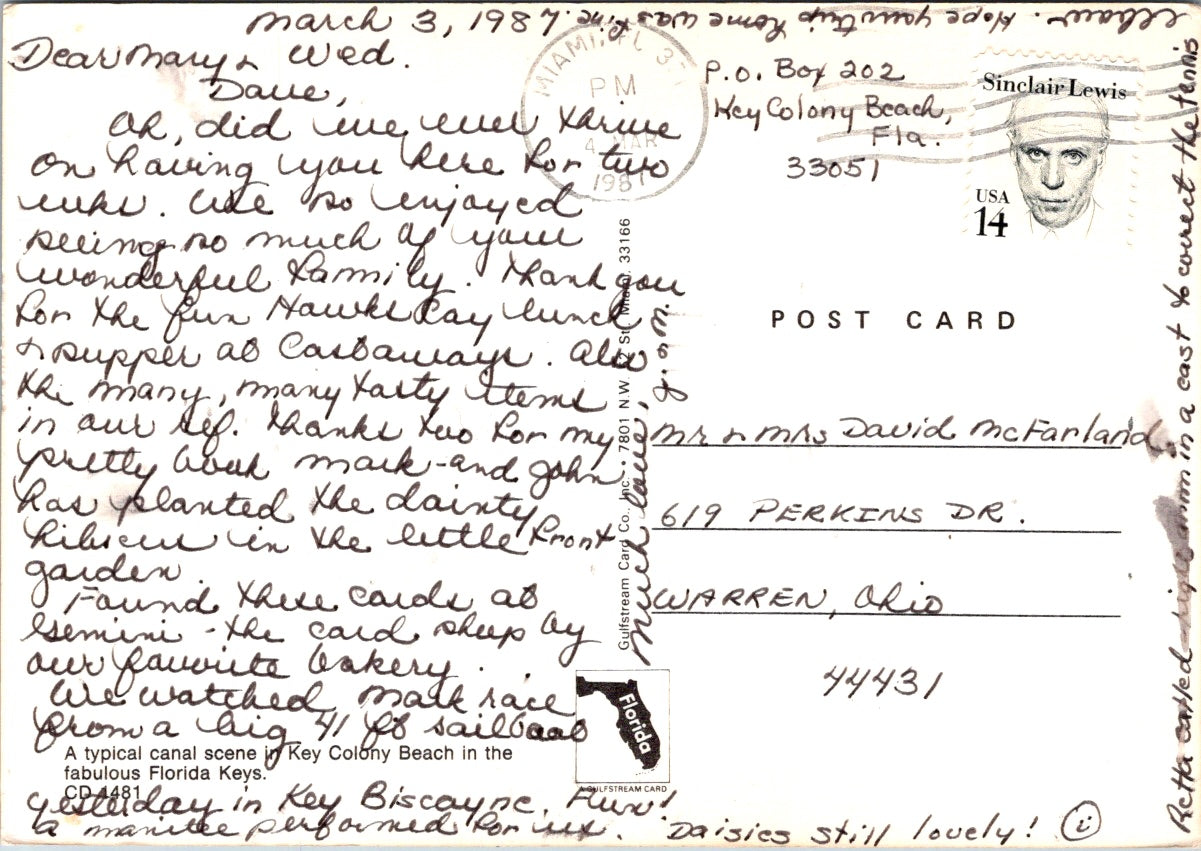 March 3, 1987
Wed.
Dear Mary &
Dave,
Oh, did we ever thrive
on having you here for two
weeks. We so enjoyed
seeing so much of your
wonderful family. Thank you
for the fun Hawks Cay lunch
& supper at Castaways. Also
the many, many tasty items
in our ref. Thanks too for my
pretty book mark - and John
has planted the dainty
hibiscus in the little front
garden.
Found these cards at
Gemini - the card shop by
our favorite bakery.
We watched Mark race
from a big 41 ft sailboat
yesterday in Key Biscayne. Fun!
a manitee performed for us. Daisies still lovely!
Much love, J. & M.
Retta called - right arm in a cast to correct the tennis
elbow. Hope your trip home was fine.
A typical canal scene in Key Colony Beach in the
fabulous Florida Keys.
CD 1481
Gulfstream Card Co., Inc. • 7801 N.W. St. Miami, 33166
Florida
A GULFSTREAM CARD
MIAMI, FL
PM
4 MAR
1987
P.O. Box 202
Key Colony Beach,
Fla.
33051
Sinclair Lewis
USA
14
POST CARD
Mr & Mrs David McFarland
619 PERKINS DR.
WARREN, Ohio
44431
i